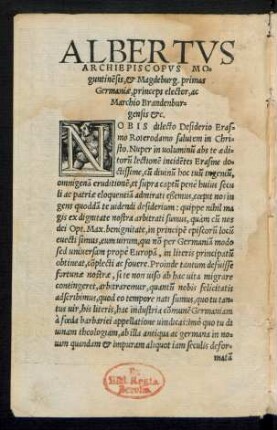 ALBERTVS
ARCHIEPISCOPVS MO
guntinẽsis, & Magdeburg. primas
Germaniæ, princeps elector, ac
Marchio Brandenbur-
gensis &c.
NOBIS dilecto Desiderio Eras
mo Roterodamo salutem in Chri-
sto. Nuper in voluminũ abs te æ di-
torũ lectionẽ incidẽtes Erasme do-
ctissime, cũ diuinũ hoc tuũ ingeniũ,
omnigenã eruditionẽ, et supra captũ penè huius secu
li ac patriæ eloquentiã admirati essemus, cœpit nos in
gens quoddã te uidendi desiderium: quippe nihil ma
gis ex dignitate nostra arbitrati sumus, quàm cũ nos
dei Opt. Max. benignitate, in principẽ episcorũ locũ
euecti simus, eum uirum, qui nõ per Germaniã modo
sed uniuersam propè Europã, in literis principatũ
obtineat, cõplecti ac fouere. Proinde tantum defuisse
fortunæ nostræ, si te non uiso ab hac uita migrare
contingeret, arbitraremur, quantũ nobis felicitatis
adscribimus, quod eo tempore nati sumus, quo tu tan-
tus uir, his literis, hac industria cõmunẽ Germaniam
à fœda barbariei appellatione uindicat: imò quo tu di
uinam theologiam, ab illa antiqua ac germana in no-
uam quandam & impuram aliquot iam seculis defor
matã
Ex
Bibl. Regia
Berolin.